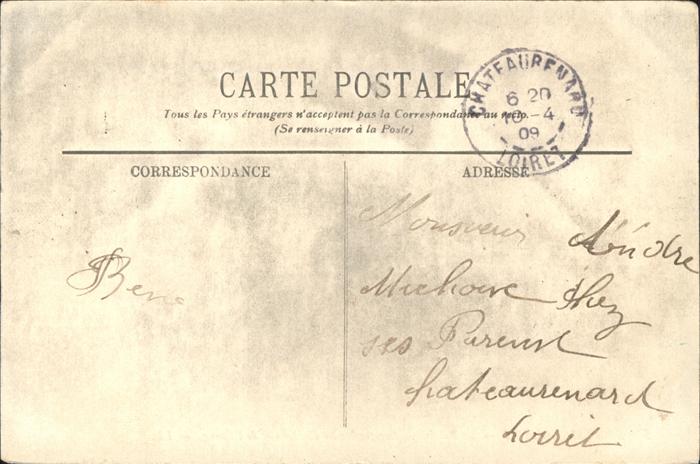 CARTE POSTALE
Tous les Pays étrangers n'acceptent pas la Correspondance au recto.
(Se renseigner à la Poste)
CHATEAURENARD
6 20
-4
09
LOIRET
CORRESPONDANCE
ADRESSE
Monsieur André
Michoux Chez
ses Parent
Chateaurenard
Loiret